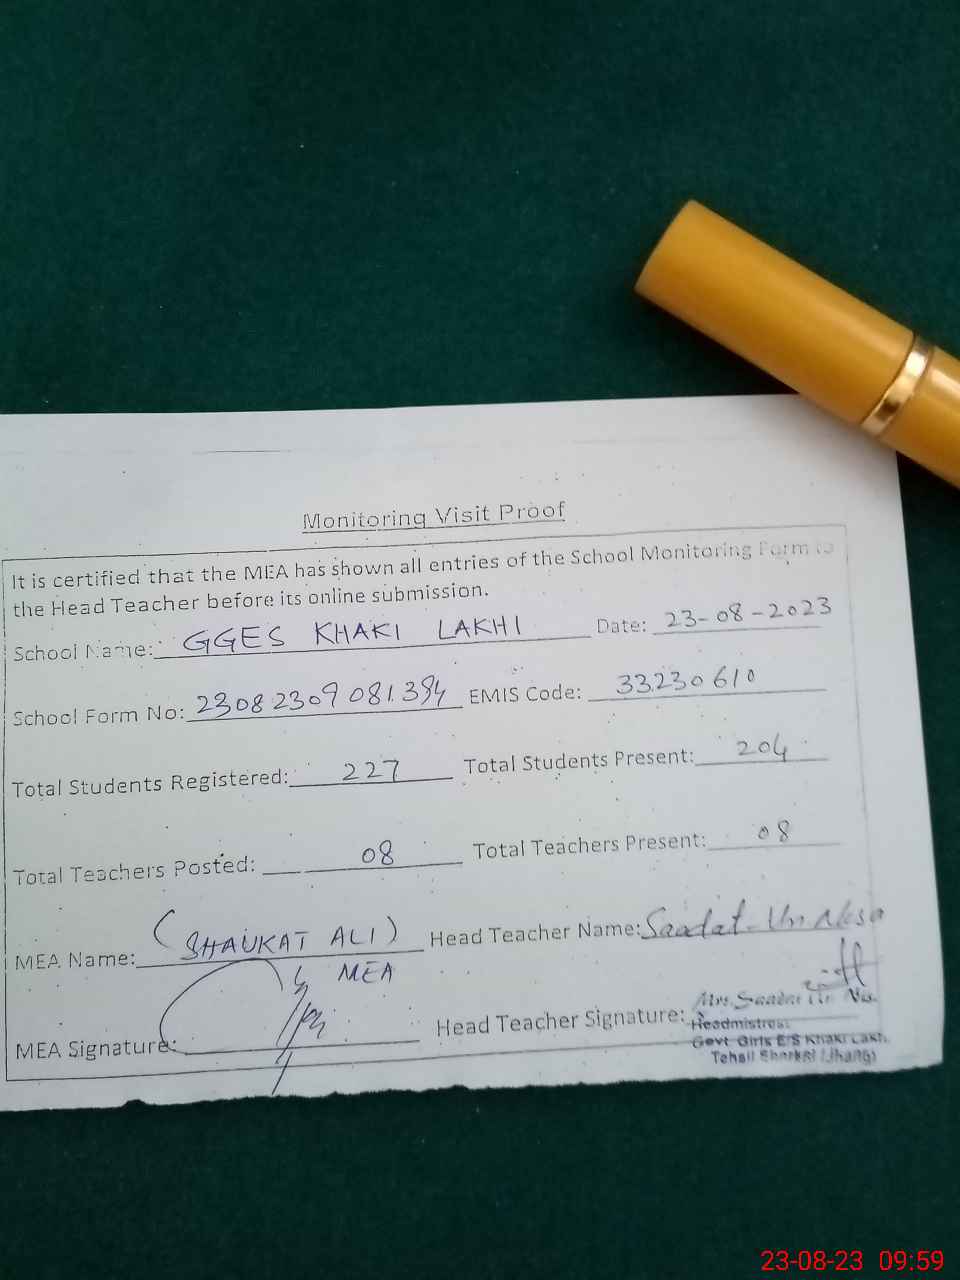 Monitoring Visit Proof
It is certified that the MEA has shown all entries of the School Monitoring Form to
the Head Teacher before its online submission.
School Name: GGES KHAKI LAKHI Date: 23-08-2023
School Form No: 23082309081394 EMIS Code: 33230610
Total Students Registered: 227 Total Students Present: 204
Total Teachers Posted: 08 Total Teachers Present: 08
MEA Name: (SHAUKAT ALI) Head Teacher Name: Saadat-Un Nksa
MEA
MEA Signature: Head Teacher Signature:
Mrs. Saadat Un Nis.
Headmistress
Govt. Girls E/S Khaki Lakh.
Tehsil Shorkot (Jhang)
23-08-23 09:59